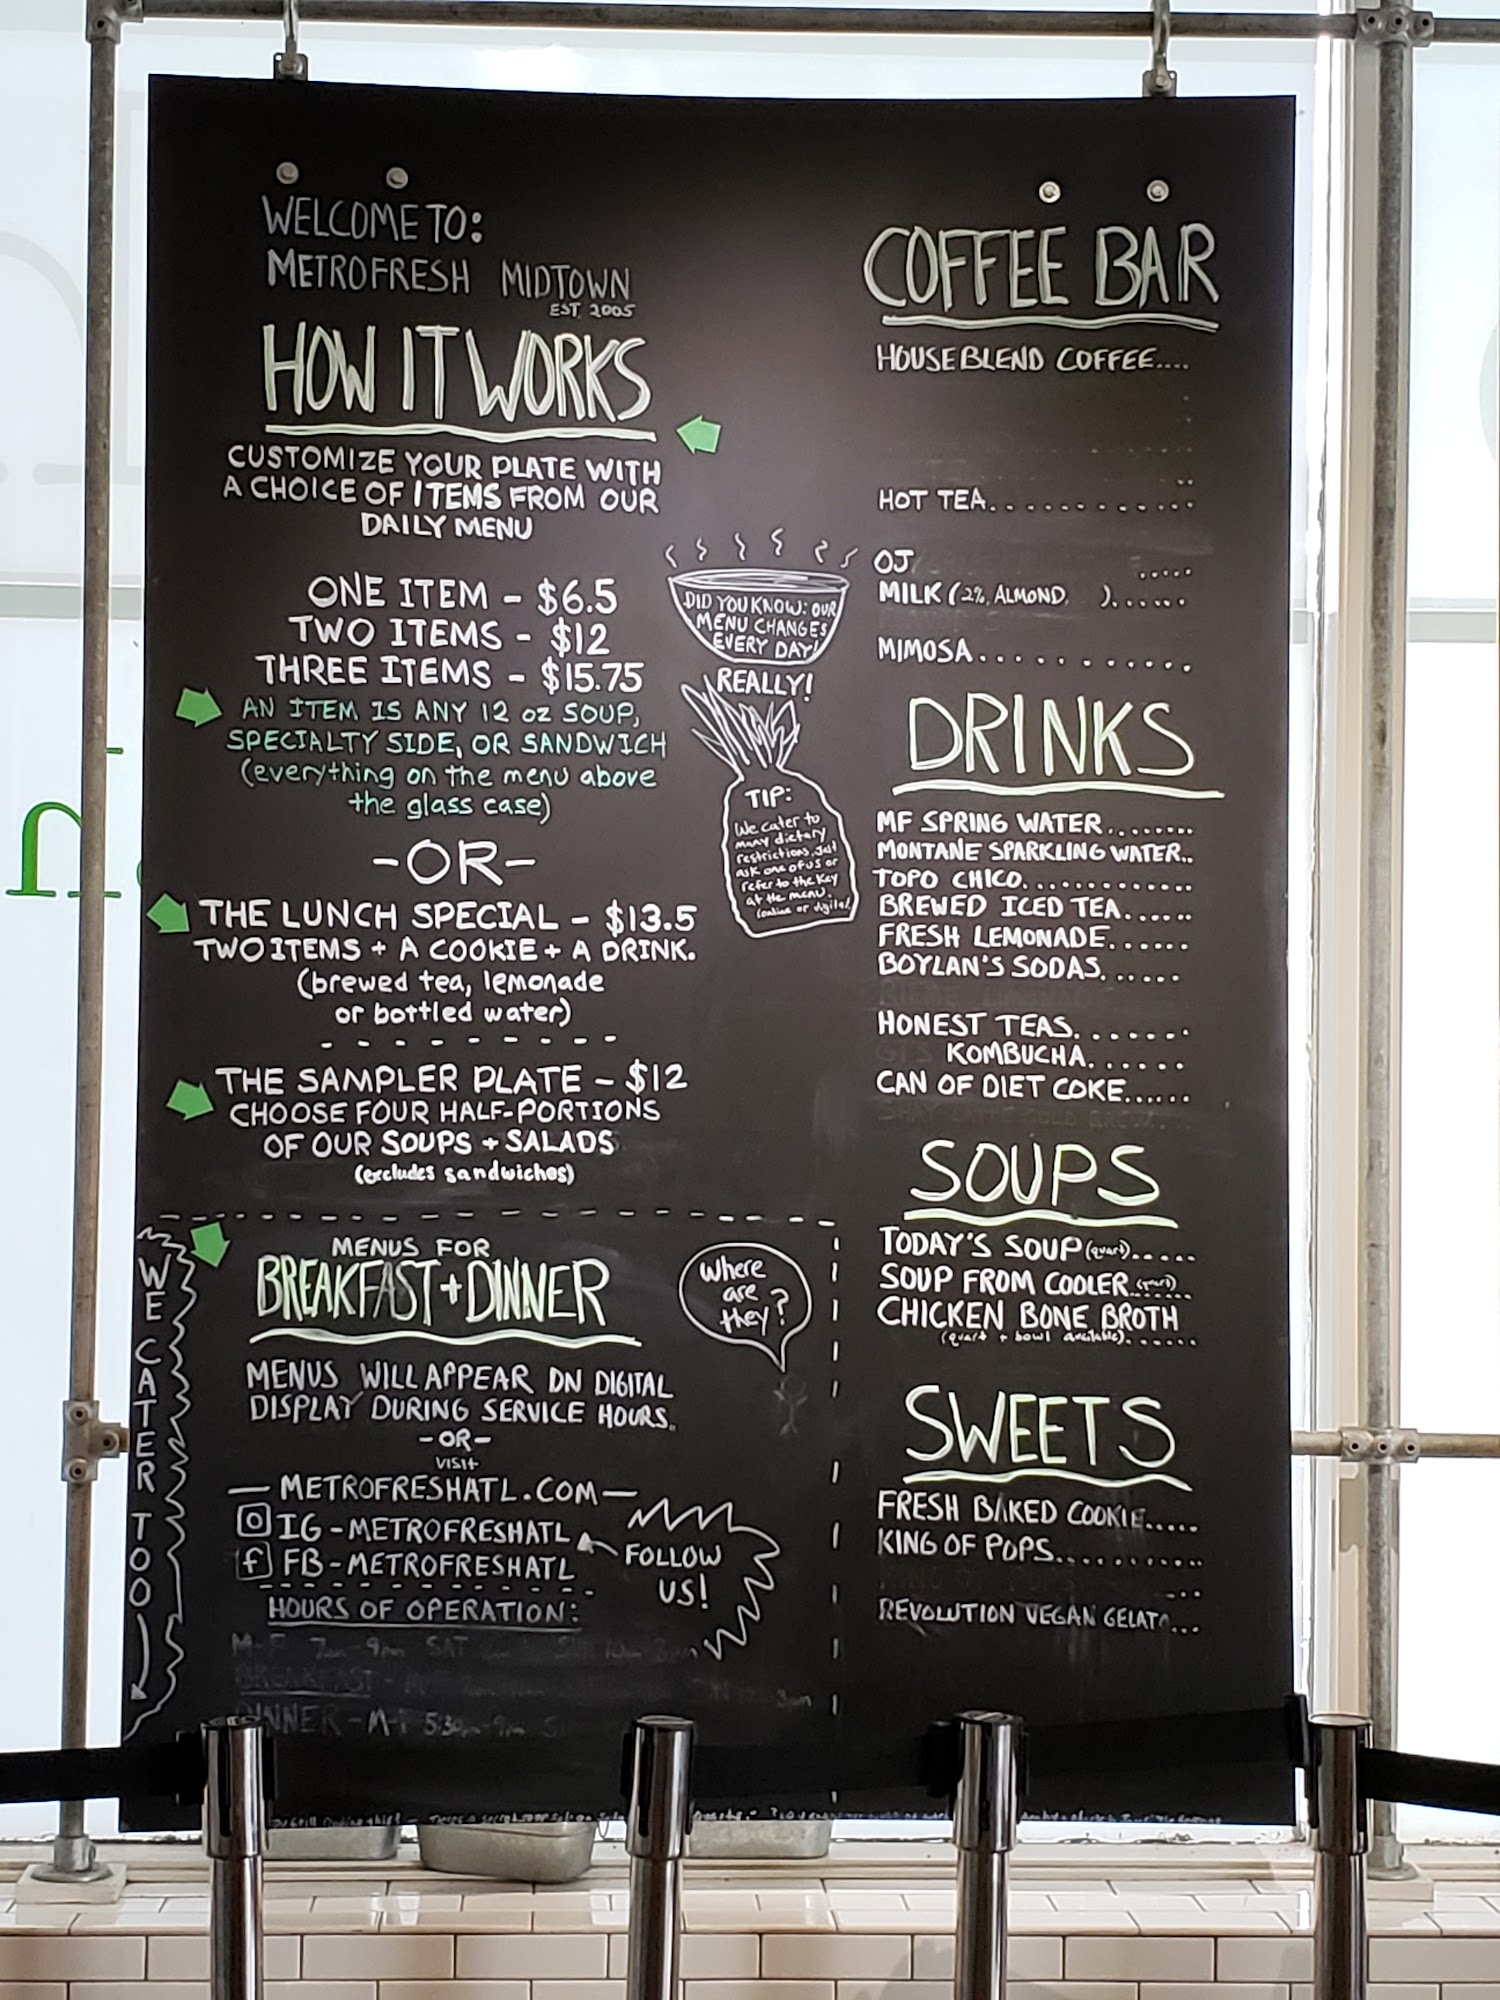 WELCOME TO:
METROFRESH MIDTOWN
EST. 2005
HOW IT WORKS
CUSTOMIZE YOUR PLATE WITH
A CHOICE OF ITEMS FROM OUR
DAILY MENU
ONE ITEM - $6.5
TWO ITEMS - $12
THREE ITEMS - $15.75
AN ITEM IS ANY 12 oz SOUP,
SPECIALTY SIDE, OR SANDWICH
(everything on the menu above
the glass case)
-OR-
THE LUNCH SPECIAL - $13.5
TWO ITEMS + A COOKIE + A DRINK.
(brewed tea, lemonade
or bottled water)
THE SAMPLER PLATE - $12
CHOOSE FOUR HALF-PORTIONS
OF OUR SOUPS + SALADS
(excludes sandwiches)
DID YOU KNOW: OUR
MENU CHANGES
EVERY DAY!
REALLY!
TIP:
We cater to
many dietary
restrictions. Just
ask one of us or
refer to the key
at the menu.
(online or digital)
WE CATER TOO
MENUS FOR
BREAKFAST + DINNER
Where
are
they?
MENUS WILL APPEAR ON DIGITAL
DISPLAY DURING SERVICE HOURS.
-OR-
VISIT
— METROFRESHATL.COM —
IG - METROFRESHATL
FB - METROFRESHATL
FOLLOW
US!
HOURS OF OPERATION:
M-F 9pm SAT
BREAKFAST -
DINNER - M-F 5:30pm-9pm
COFFEE BAR
HOUSE BLEND COFFEE....
HOT TEA............
OJ .....
MILK (2%, ALMOND, )......
MIMOSA............
DRINKS
MF SPRING WATER........
MONTANE SPARKLING WATER..
TOPO CHICO.............
BREWED ICED TEA......
FRESH LEMONADE......
BOYLAN'S SODAS......
HONEST TEAS.......
KOMBUCHA......
CAN OF DIET COKE......
SOUPS
TODAY'S SOUP (quart).....
SOUP FROM COOLER (quart)
CHICKEN BONE BROTH
(quart + bowl available)......
SWEETS
FRESH BAKED COOKIE.....
KING OF POPS...........
REVOLUTION VEGAN GELATO...